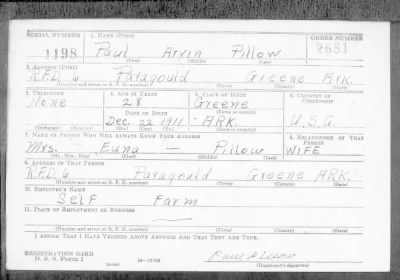 SERIAL NUMBER 1. NAME (Print) ORDER NUMBER
1198 Paul Arvin Pillow 2681
(First) (Middle) (Last)
2. ADDRESS (Print)
R.F.D. 6 Paragould Greene ARK.
(Number and street or R. F. D. number) (Town) (County) (State)
3. TELEPHONE 4. AGE IN YEARS 5. PLACE OF BIRTH 6. COUNTRY OF CITIZENSHIP
None 28 Greene
(Town or county)
DATE OF BIRTH
Dec. 22 1911 ARK. U.S.A.
(Exchange) (No.) (Mo.) (Day) (Yr.) (State or country)
7. NAME OF PERSON WHO WILL ALWAYS KNOW YOUR ADDRESS 8. RELATIONSHIP OF THAT PERSON
Mrs. Euna — Pillow WIFE
(Mr., Mrs., Miss) (First) (Middle) (Last)
9. ADDRESS OF THAT PERSON
R.F.D. 6 Paragould Greene ARK.
(Number and street or R. F. D. number) (Town) (County) (State)
10. EMPLOYER'S NAME
Self Farm
11. PLACE OF EMPLOYMENT OR BUSINESS
(Number and street or R. F. D. number) (Town) (County) (State)
I AFFIRM THAT I HAVE VERIFIED ABOVE ANSWERS AND THAT THEY ARE TRUE.
REGISTRATION CARD
D. S. S. Form 1
(over)
(Registrant's signature)